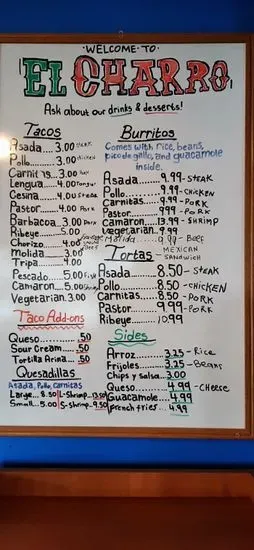 ·WELCOME·TO·
EL CHARRO
Ask about our drinks & desserts!
Tacos
Asada......3.00 steak
Pollo......3.00 chicken
Carnitas...3.00
Lengua.....4.00 Tongue
Cesina.....4.00 steak
Pastor.....4.00 Pork
Barbacoa...3.00 Pork
Ribeye.....5.00
Chorizo....4.00
Molida.....3.00
Tripa......4.00
Pescado....5.00 Fish
Camaron....5.00 Shrimp
Vegetarian.3.00
Taco Add-ons
Queso......50
Sour Cream...50
Tortilla Arina...50
Quesadillas
Asada, Pollo, Carnitas
Large... 8.50 L-Shrimp..13.50
Small... 5.00 S-Shrimp..9.50
Burritos
Comes with rice, beans,
pico de gallo, and guacamole
inside.
Asada.......9.99-STEAK
Pollo.......9.99-CHICKEN
Carnitas....9.99-PORK
Pastor......9.99-PORK
Camaron.....13.99-SHRIMP
Vegetarian..9.99
Molida......9.99-Beef
Tortas- MEXICAN SANDWICH
Asada.......8.50-STEAK
Pollo.......8.50-CHICKEN
Carnitas....8.50-PORK
Pastor......9.99-PORK
Ribeye......10.99
Sides
Arroz.......3.25-Rice
Frijoles....3.25-Beans
Chips y salsa...3.00
Queso.......4.99-CHEESE
Guacamole...4.99
french fries...4.99